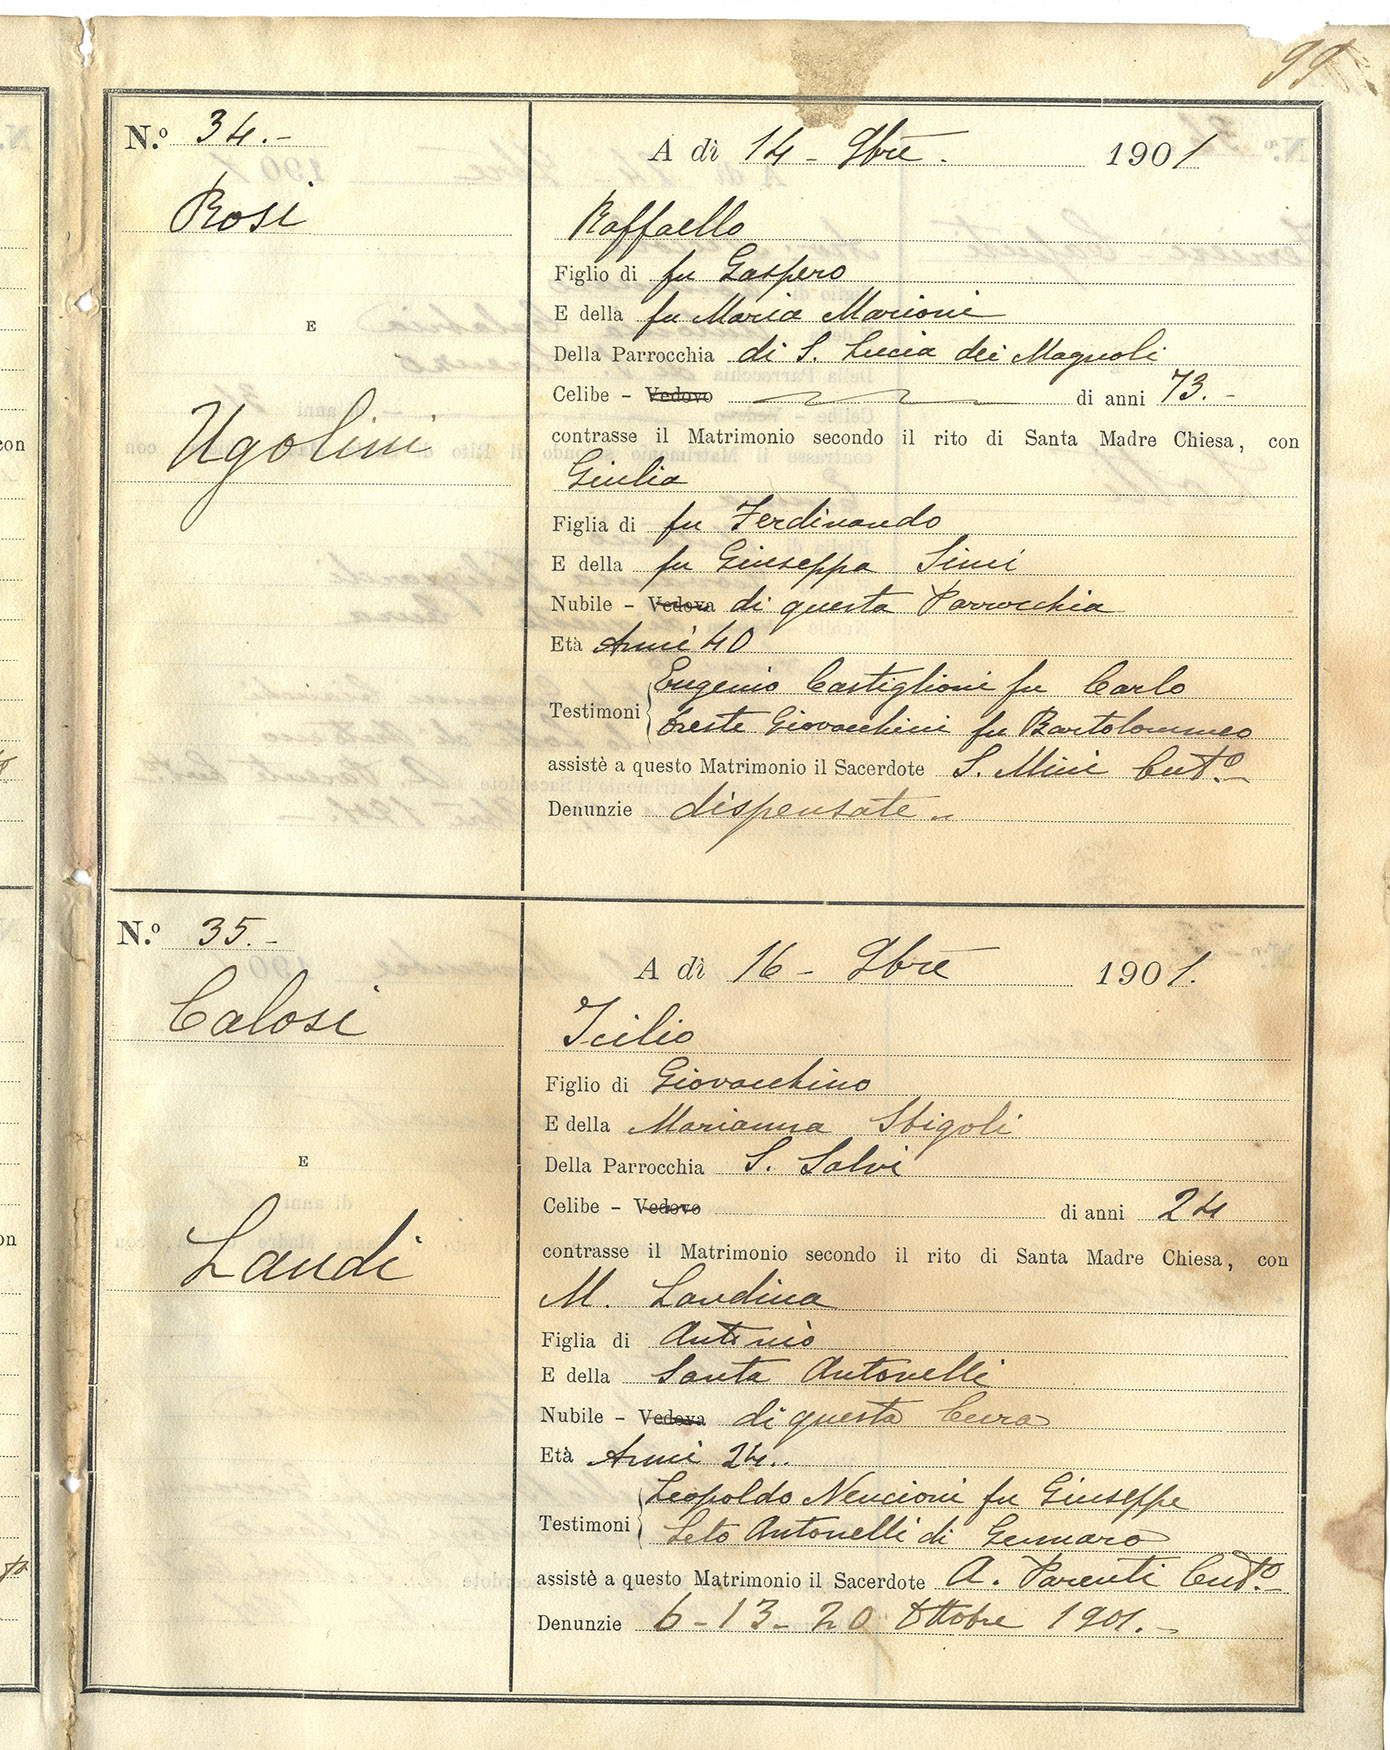 99
N.º 34.-
Rosi
E
Ugolini
A dì 14 - 9bre. 1901
Raffaello
Figlio di fu Gaspero
E della fu Maria Marioni
Della Parrocchia di S. Lucia dei Magnoli
Celibe - Vedovo di anni 73.-
contrasse il Matrimonio secondo il rito di Santa Madre Chiesa, con
Giulia
Figlia di fu Ferdinando
E della fu Giuseppa Simi
Nubile - Vedova di questa Parrocchia
Età Anni 40
Eugenio Castiglioni fu Carlo
Testimoni
Oreste Giovacchini fu Bartolommeo
assistè a questo Matrimonio il Sacerdote S. Mini Curº.-
Denunzie dispensate
N.º 35.-
Calosi
E
Landi
A dì 16 - 9bre 1901.
Icilio
Figlio di Giovacchino
E della Marianna Sbigoli
Della Parrocchia S. Salvi
Celibe - Vedovo di anni 24
contrasse il Matrimonio secondo il rito di Santa Madre Chiesa, con
M. Landina
Figlia di Antonio
E della Santa Antonelli
Nubile - Vedova di questa Cura
Età Anni 24..
Leopoldo Nencioni fu Giuseppe
Testimoni
Leto Antonelli di Gennaro
assistè a questo Matrimonio il Sacerdote A. Parenti Curº.-
Denunzie 6 - 13 - 20 Ottobre 1901.-